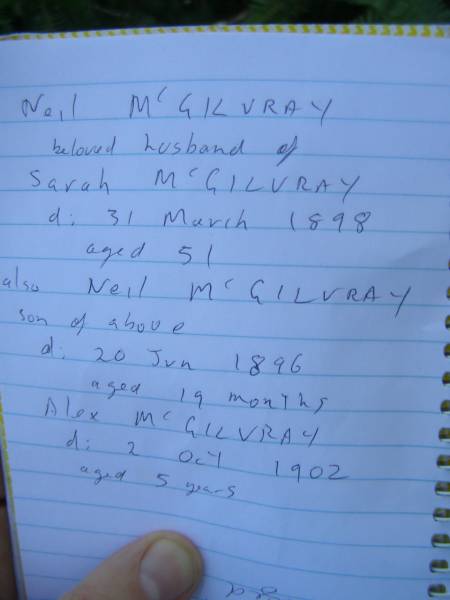 Neil McGILVRAY
beloved husband of
Sarah McGILVRAY
d: 31 March 1898
aged 51
also Neil McGILVRAY
son of above
d: 20 Jun 1896
aged 19 months
Alex McGILVRAY
d: 2 Oct 1902
aged 5 years